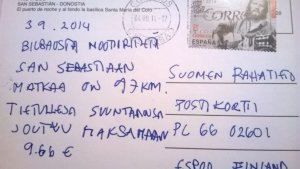 SAN SEBASTIAN - DONOSTIA
El puerto de noche y al fondo la basílica Santa María del Coro
3.9.2014
BILBAOSTA
SAN SEBASTIAAN
MATKAA ON 97KM.
TIETULLEJA SUUNTAANSA
JOUTUU MAKSAMAAN
9.66 €
CORREOS
ESPAÑA
SUOMEN RAHATIETO
POSTIKORTTI
PL 66 02601
ESPOO FINLAND